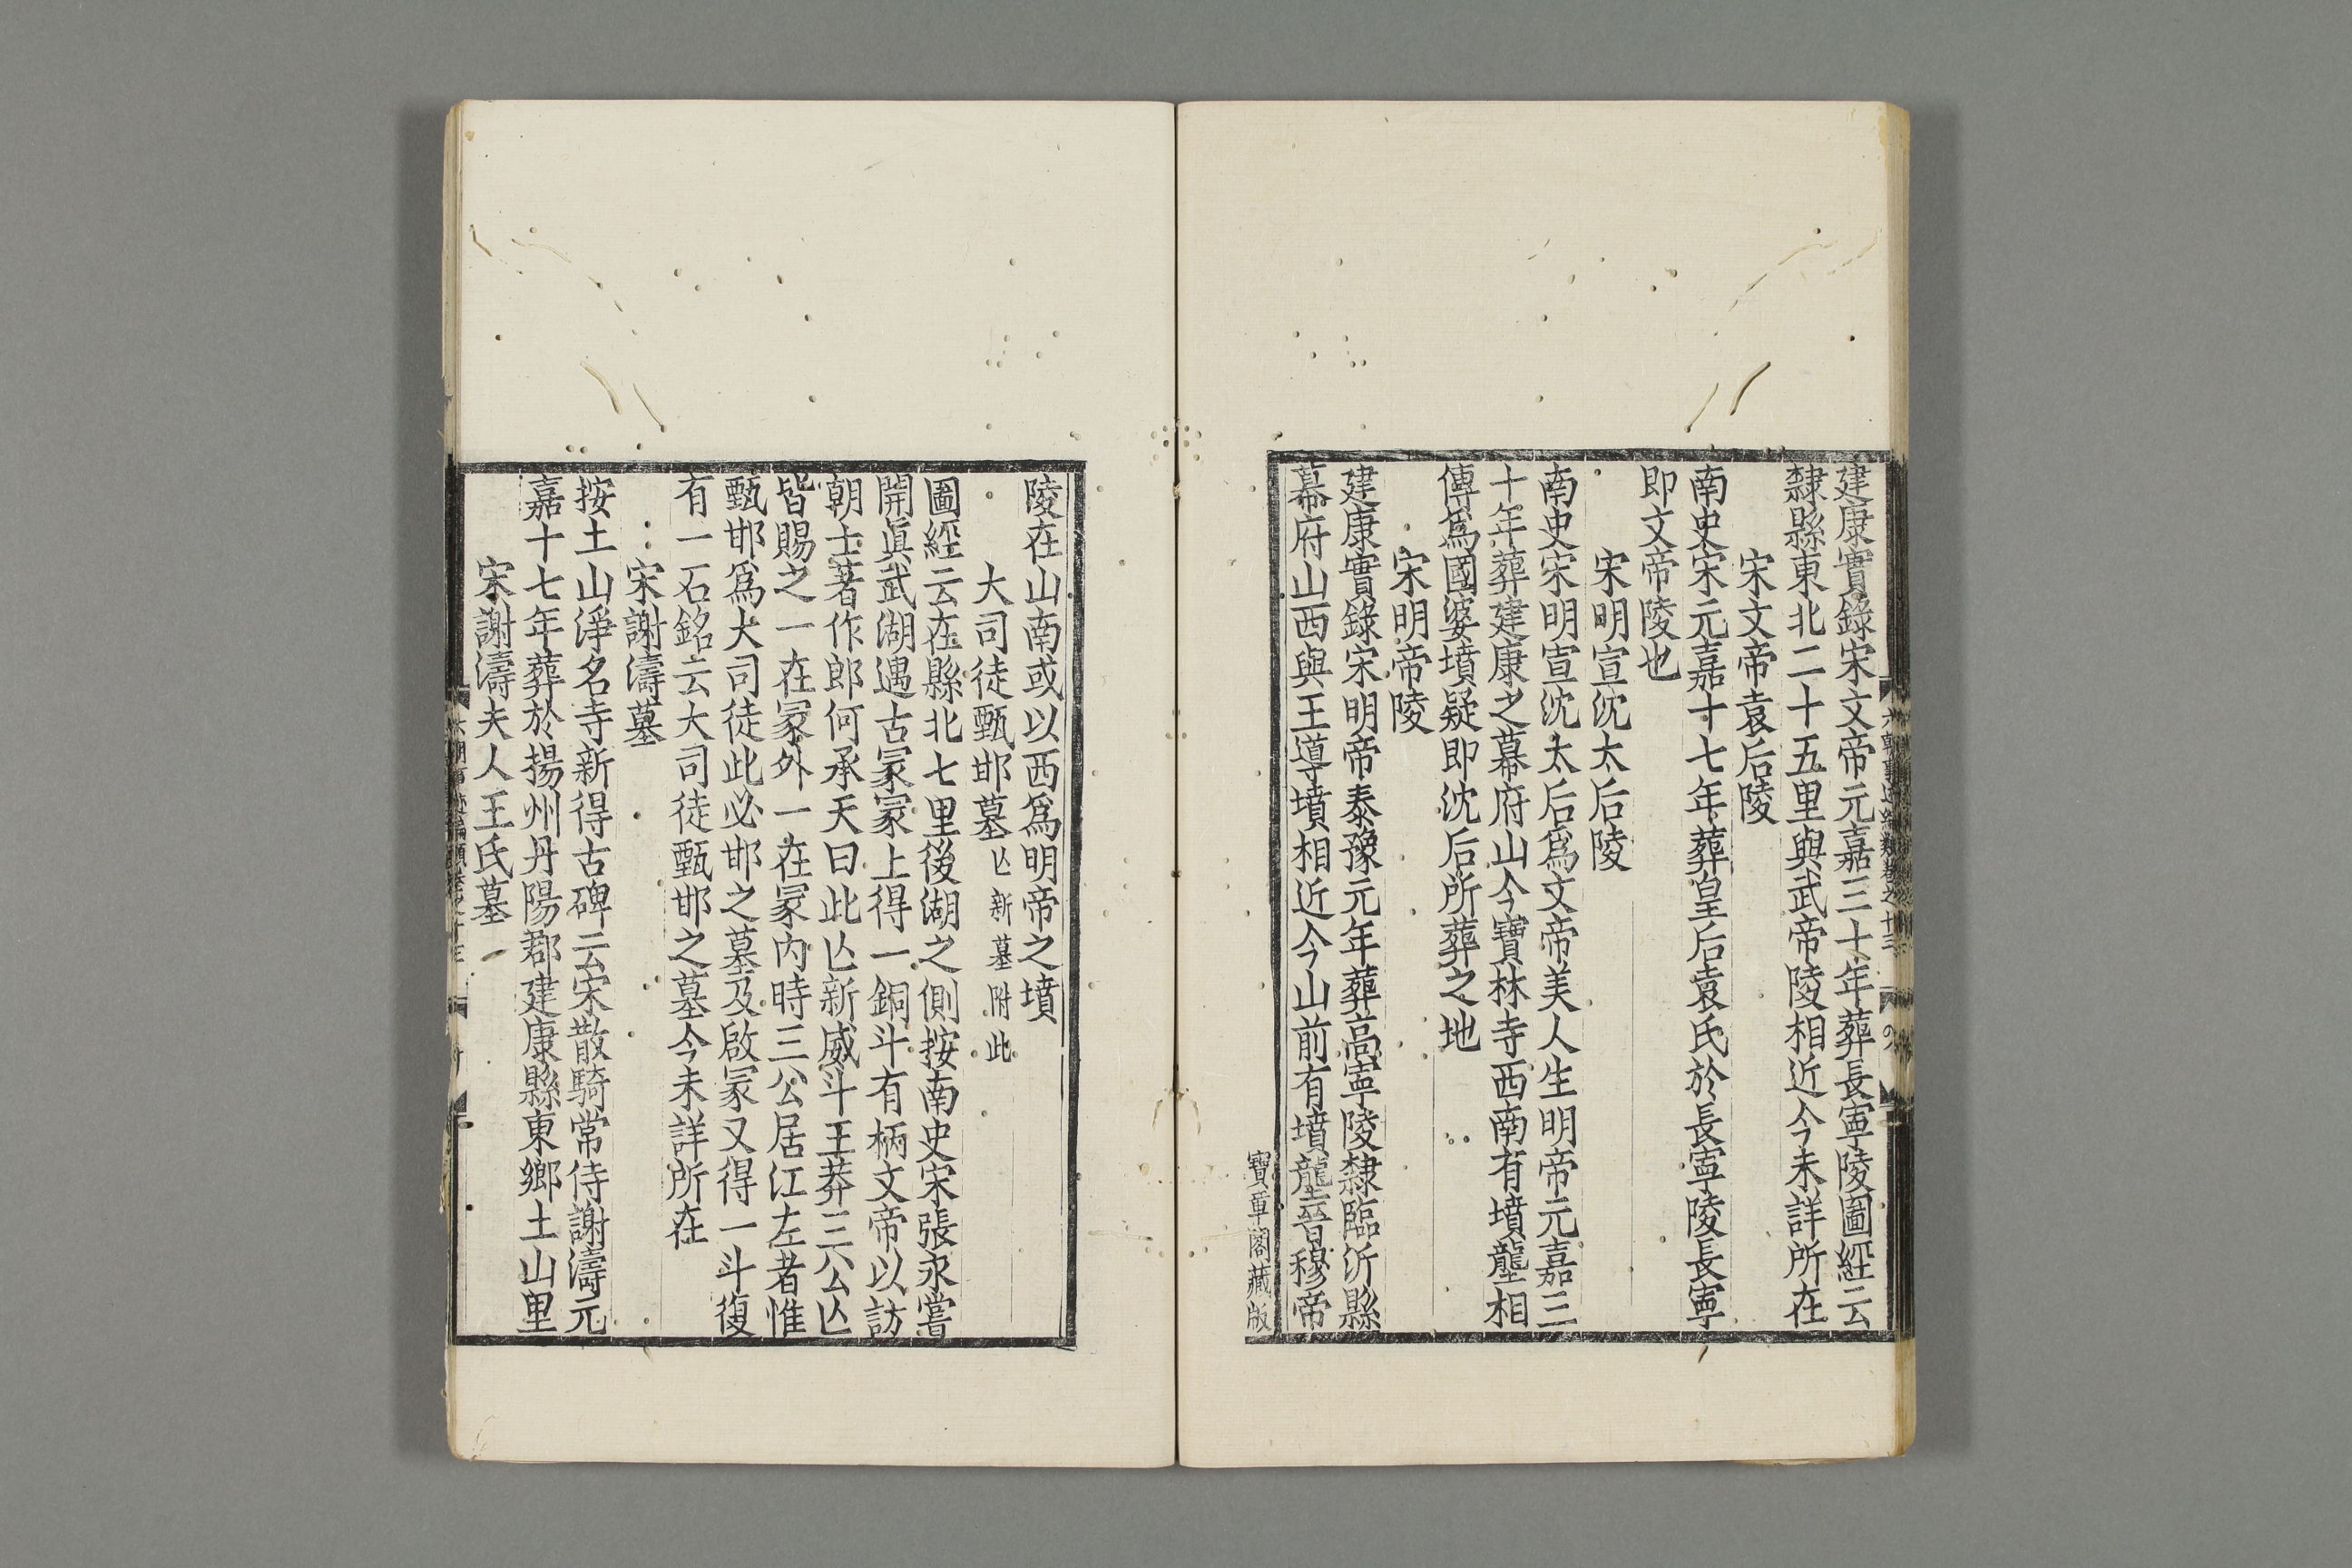 建康實錄宋文帝元嘉三十年葬長寧陵圖經云
隸縣東北二十五里與武帝陵相近今未詳所在
宋文帝袁后陵
南史宋元嘉十七年葬皇后袁氏於長寧陵長寧
即文帝陵也
宋明宣沈太后陵
南史宋明宣沈太后爲文帝美人生明帝元嘉三
十年葬建康之幕府山今寶林寺西南有墳壟相
傳爲國婆墳疑即沈后所葬之地
宋明帝陵
建康實錄宋明帝泰豫元年葬高寧陵隸臨沂縣
幕府山西與王導墳相近今山前有墳壟晉穆帝
寶章閣藏版
陵在山南或以西爲明帝之墳
大司徒甄邯墓亾新墓附此
圖經云在縣北七里後湖之側按南史宋張永嘗
開眞武湖遇古冡冡上得一銅斗有柄文帝以訪
朝士著作郎何承天曰此亾新威斗王莽三公亾
皆賜之一在冡外一在冡內時三公居江左者惟
甄邯爲大司徒此必邯之墓及啟冡又得一斗復
有一石銘云大司徒甄邯之墓今未詳所在
宋謝濤墓
按土山淨名寺新得古碑云宋散騎常侍謝濤元
嘉十七年葬於揚州丹陽郡建康縣東鄉土山里
宋謝濤夫人王氏墓